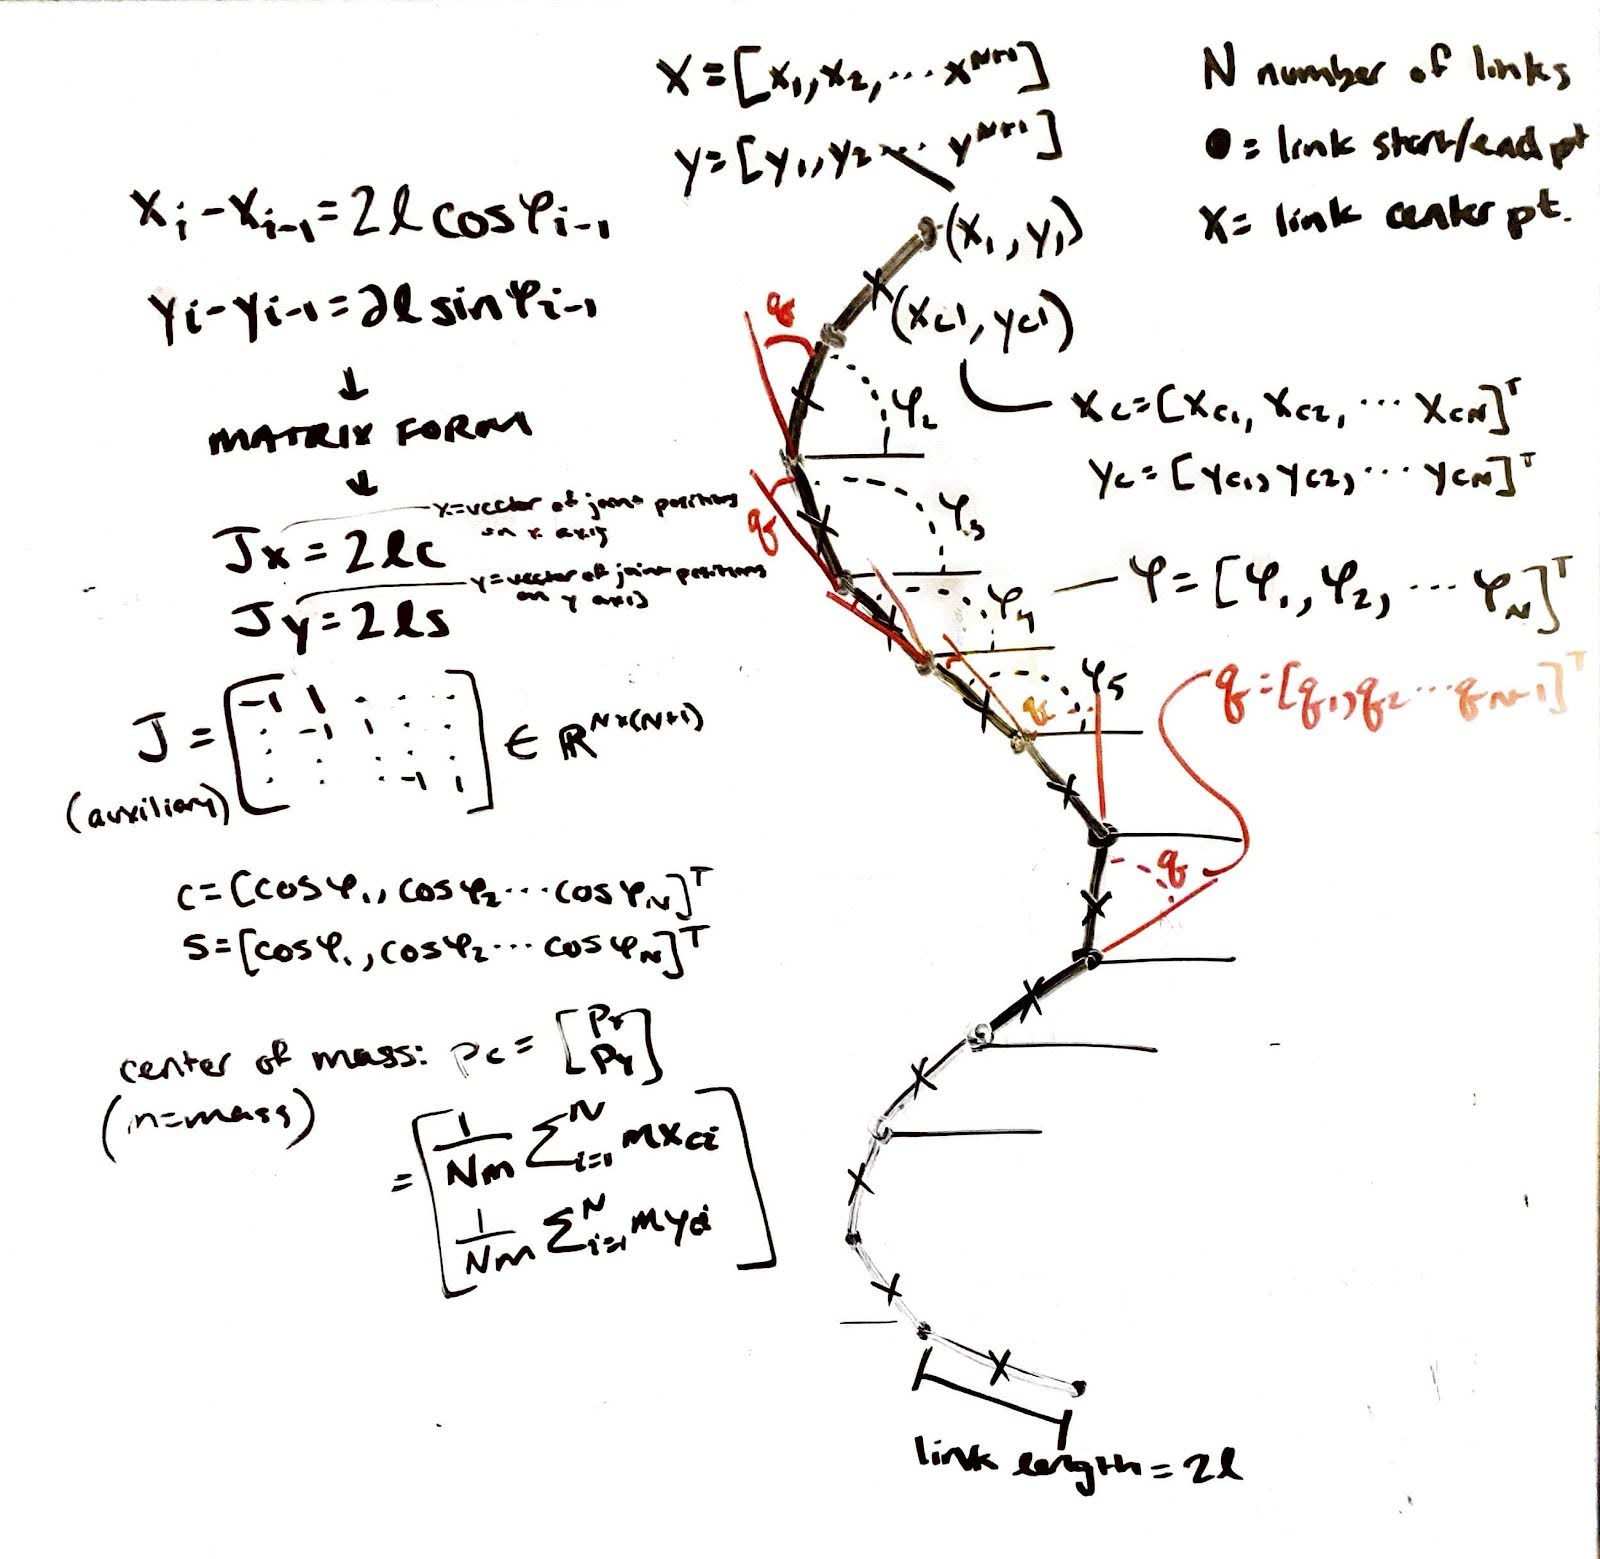 X=[x₁,x₂,…x^N+1]
y=[y₁,y₂…y^N+1]
N number of links
●= link start/end pt
X= link center pt.
xᵢ-xᵢ₋₁=2ℓcosφᵢ₋₁
yᵢ-yᵢ₋₁=2ℓsinφᵢ₋₁
↓
MATRIX FORM
↓
Jx=2ℓc
x=vector of joint positions
on x axis
Jy=2ℓs
y=vector of joint positions
on y axis
J=[-1 1 . . . . -1 1 . . . . . . . . . . -1 1] ∈ ℝ^N×(N+1)
(auxiliary)
c=[cosφ₁, cosφ₂…cosφN]ᵀ
s=[cosφ₁, cosφ₂…cosφN]ᵀ
center of mass: pc=[Px Py]
(m=mass)
=[1/Nm ∑ᵢ₌₁ᴺ mxci
1/Nm ∑ᵢ₌₁ᴺ myci]
(x₁,y₁)
(xc1,yc1)
xc=[xc1, xc2, … xcN]ᵀ
yc=[yc1, yc2, … ycN]ᵀ
q
φ₂
q
φ₃
φ₄
φ=[φ₁,φ₂, … φN]ᵀ
φ₅
q
q=[q₁,q₂…qN-1]ᵀ
q
link length=2ℓ